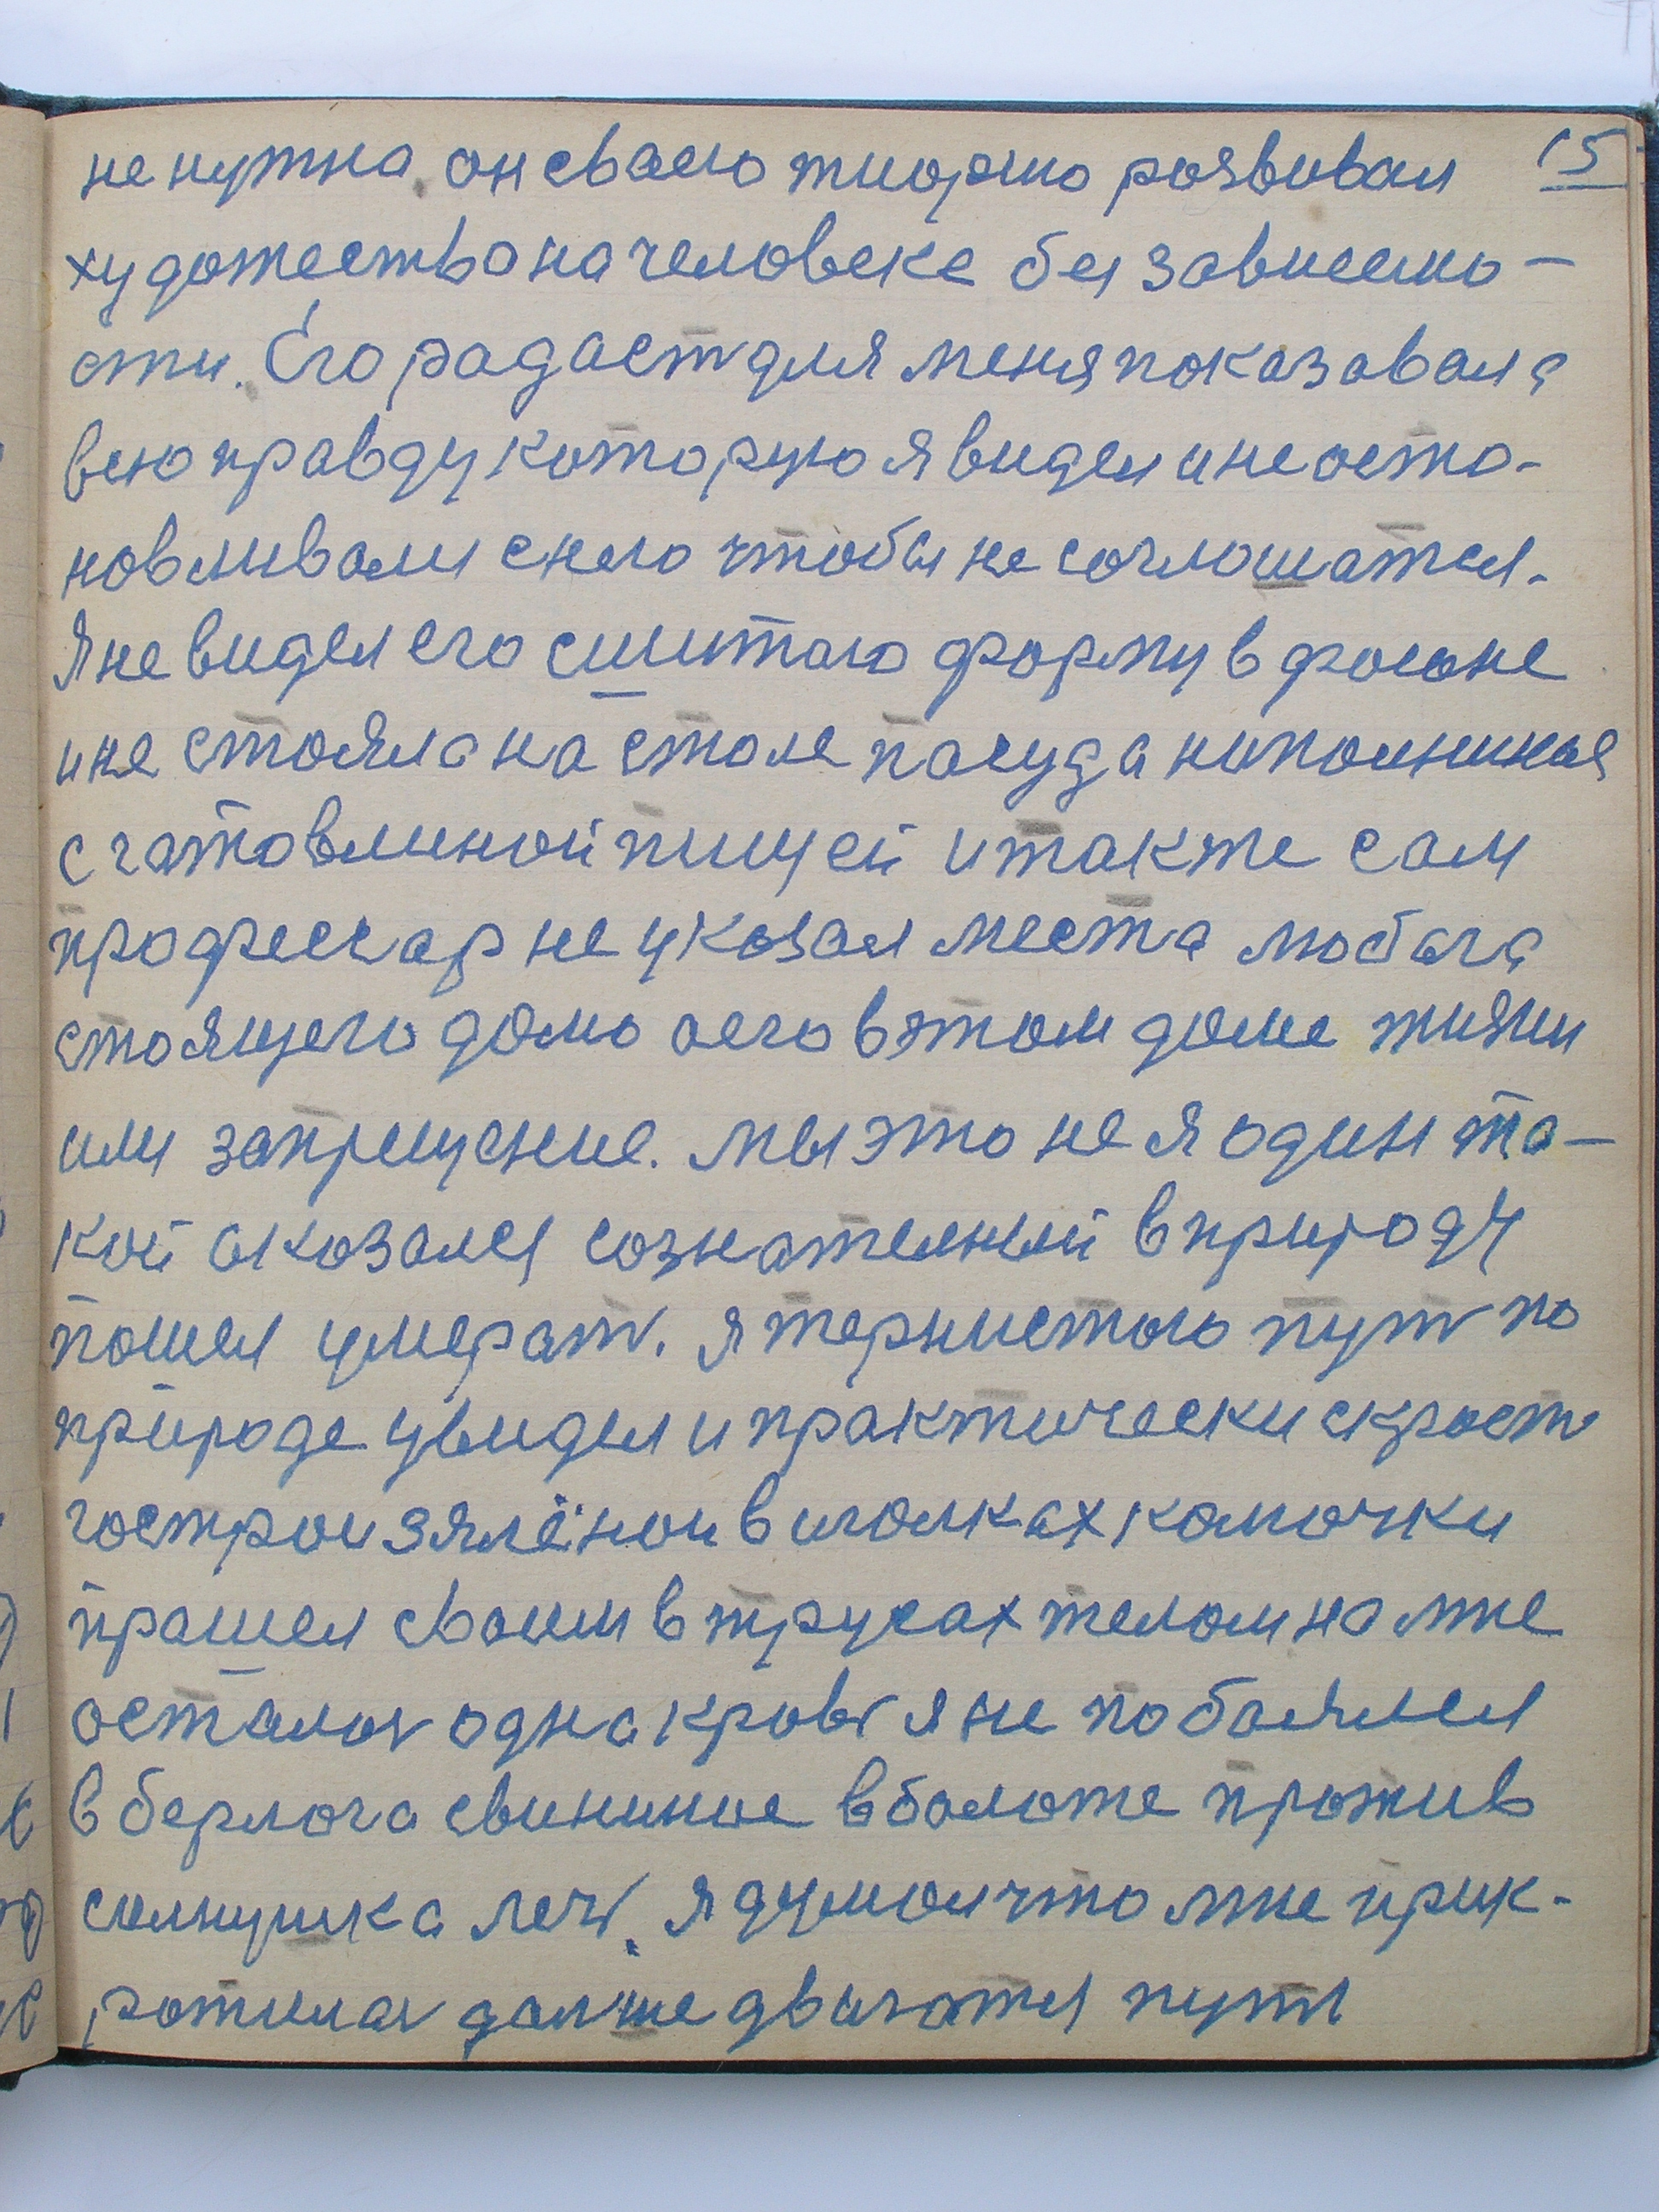 15
не нужна. он сваею тиорию розвивал
художество на человеке без зависемо-
сти. Его радаст для меня показавала
всю правду которую я видел и не оста-
новливали снего чтобы не соглошатся.
Я не видел его сшитаю форму в фасоне
и не стояла на столе пасуда наполниная
с гатовлиной пищей и также сам
профессар не указал места любога
стоящего дома а его в этом доме жизни
или запрещение. мы это не я один та-
кой аказался сознателный в природу
пошел умерат. я тернистою пут по
природе увидел и практически скрост
гострои зялёнои в иголках камочки
прашел своим в трусах телом на мне
осталос одна кров я не побаялся
в берлога свининое в балоте против
солнушка леч. я думал что мне прик-
ратилас далше двигатся пути